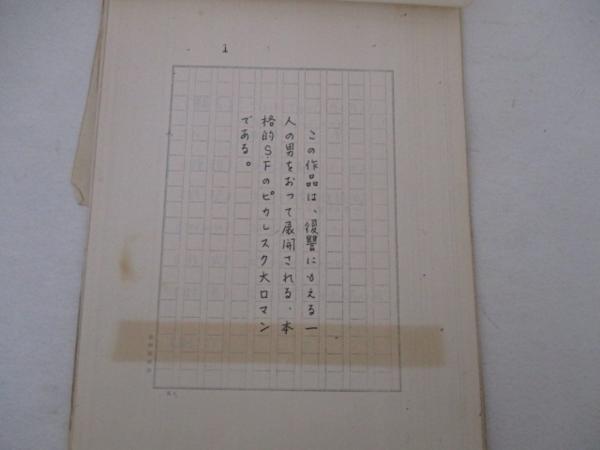 1
この作品は、復讐にもえる一
人の男をおって展開される、本
格的S.Fのピカレスク大ロマン
である。